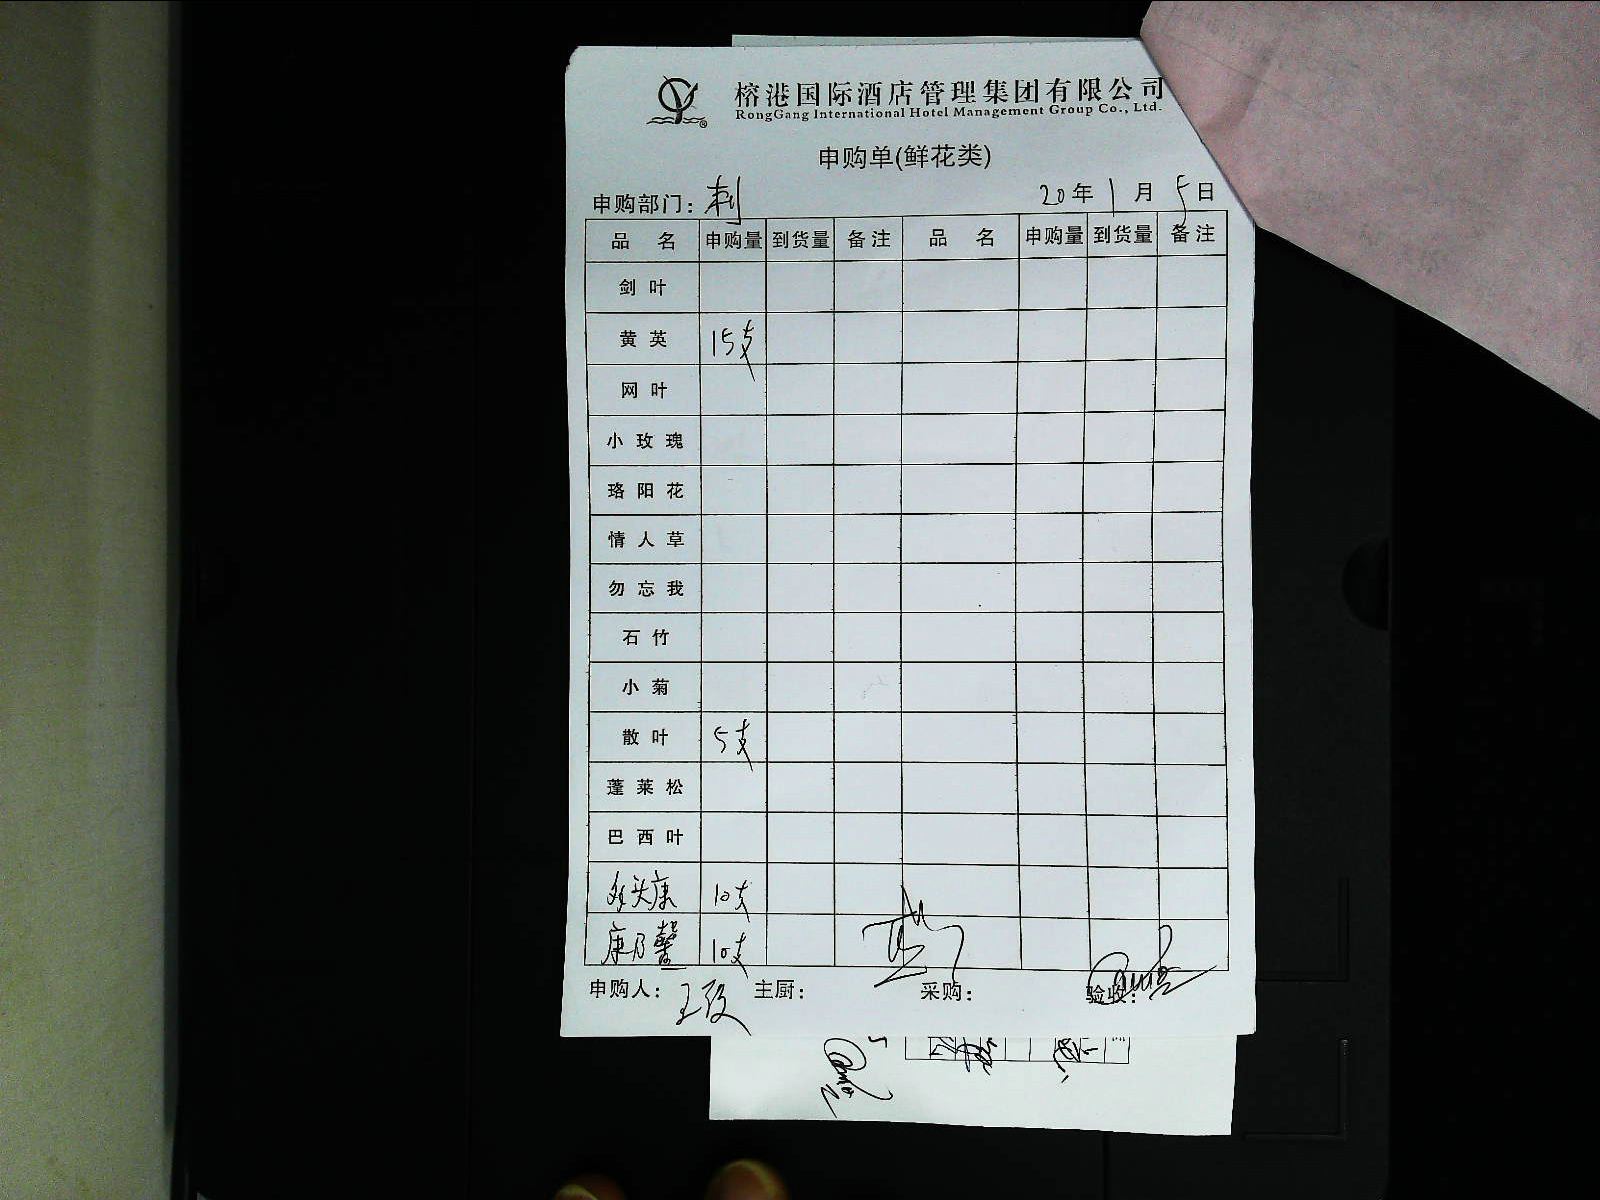 榕港国际酒店管理集团有限公司
RongGang International Hotel Management Group Co., Ltd.
申购单(鲜花类)
申购部门: 刺 20年1月5日
品名 申购量 到货量 备注 品名 申购量 到货量 备注
剑叶
黄英 15支
网叶
小玫瑰
珞阳花
情人草
勿忘我
石竹
小菊
散叶 5支
蓬莱松
巴西叶
多头康 10支
康乃馨 10支
申购人: 主厨: 采购: 验收: